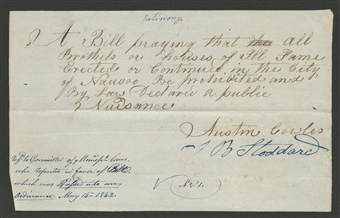 A Bill praying that all
Brothels or houses of Ill Fame
Erected or Continued in the City
of Nauvoo Be prohibited and
By Law Declared a public
Nuisance
Austin Cowles
J B Stoddard
Committee of
who Reported in favor of Bill
which was Passed into an
Ordinance May 14th 1842.